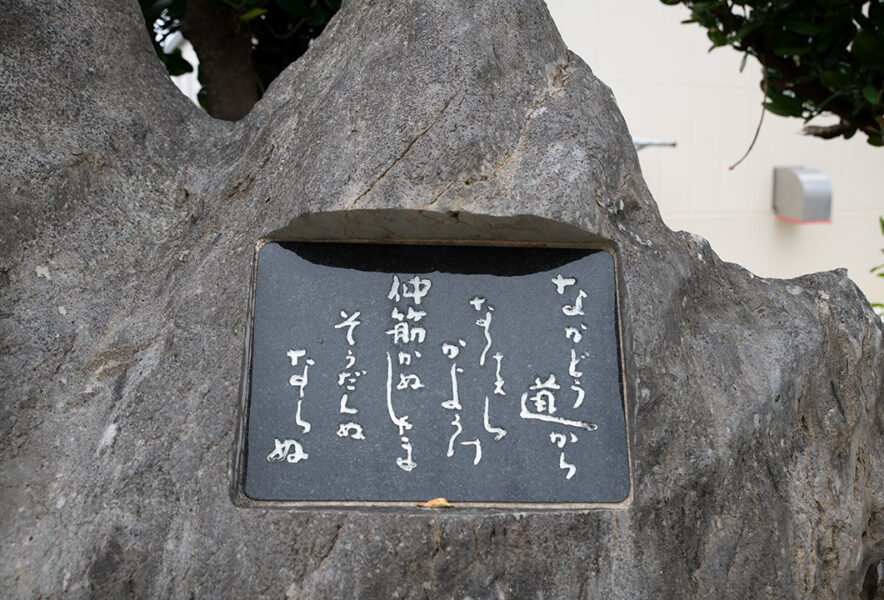 なかどう道から
かようけ
仲筋かぬしゃま
そうだんぬ
ならぬ